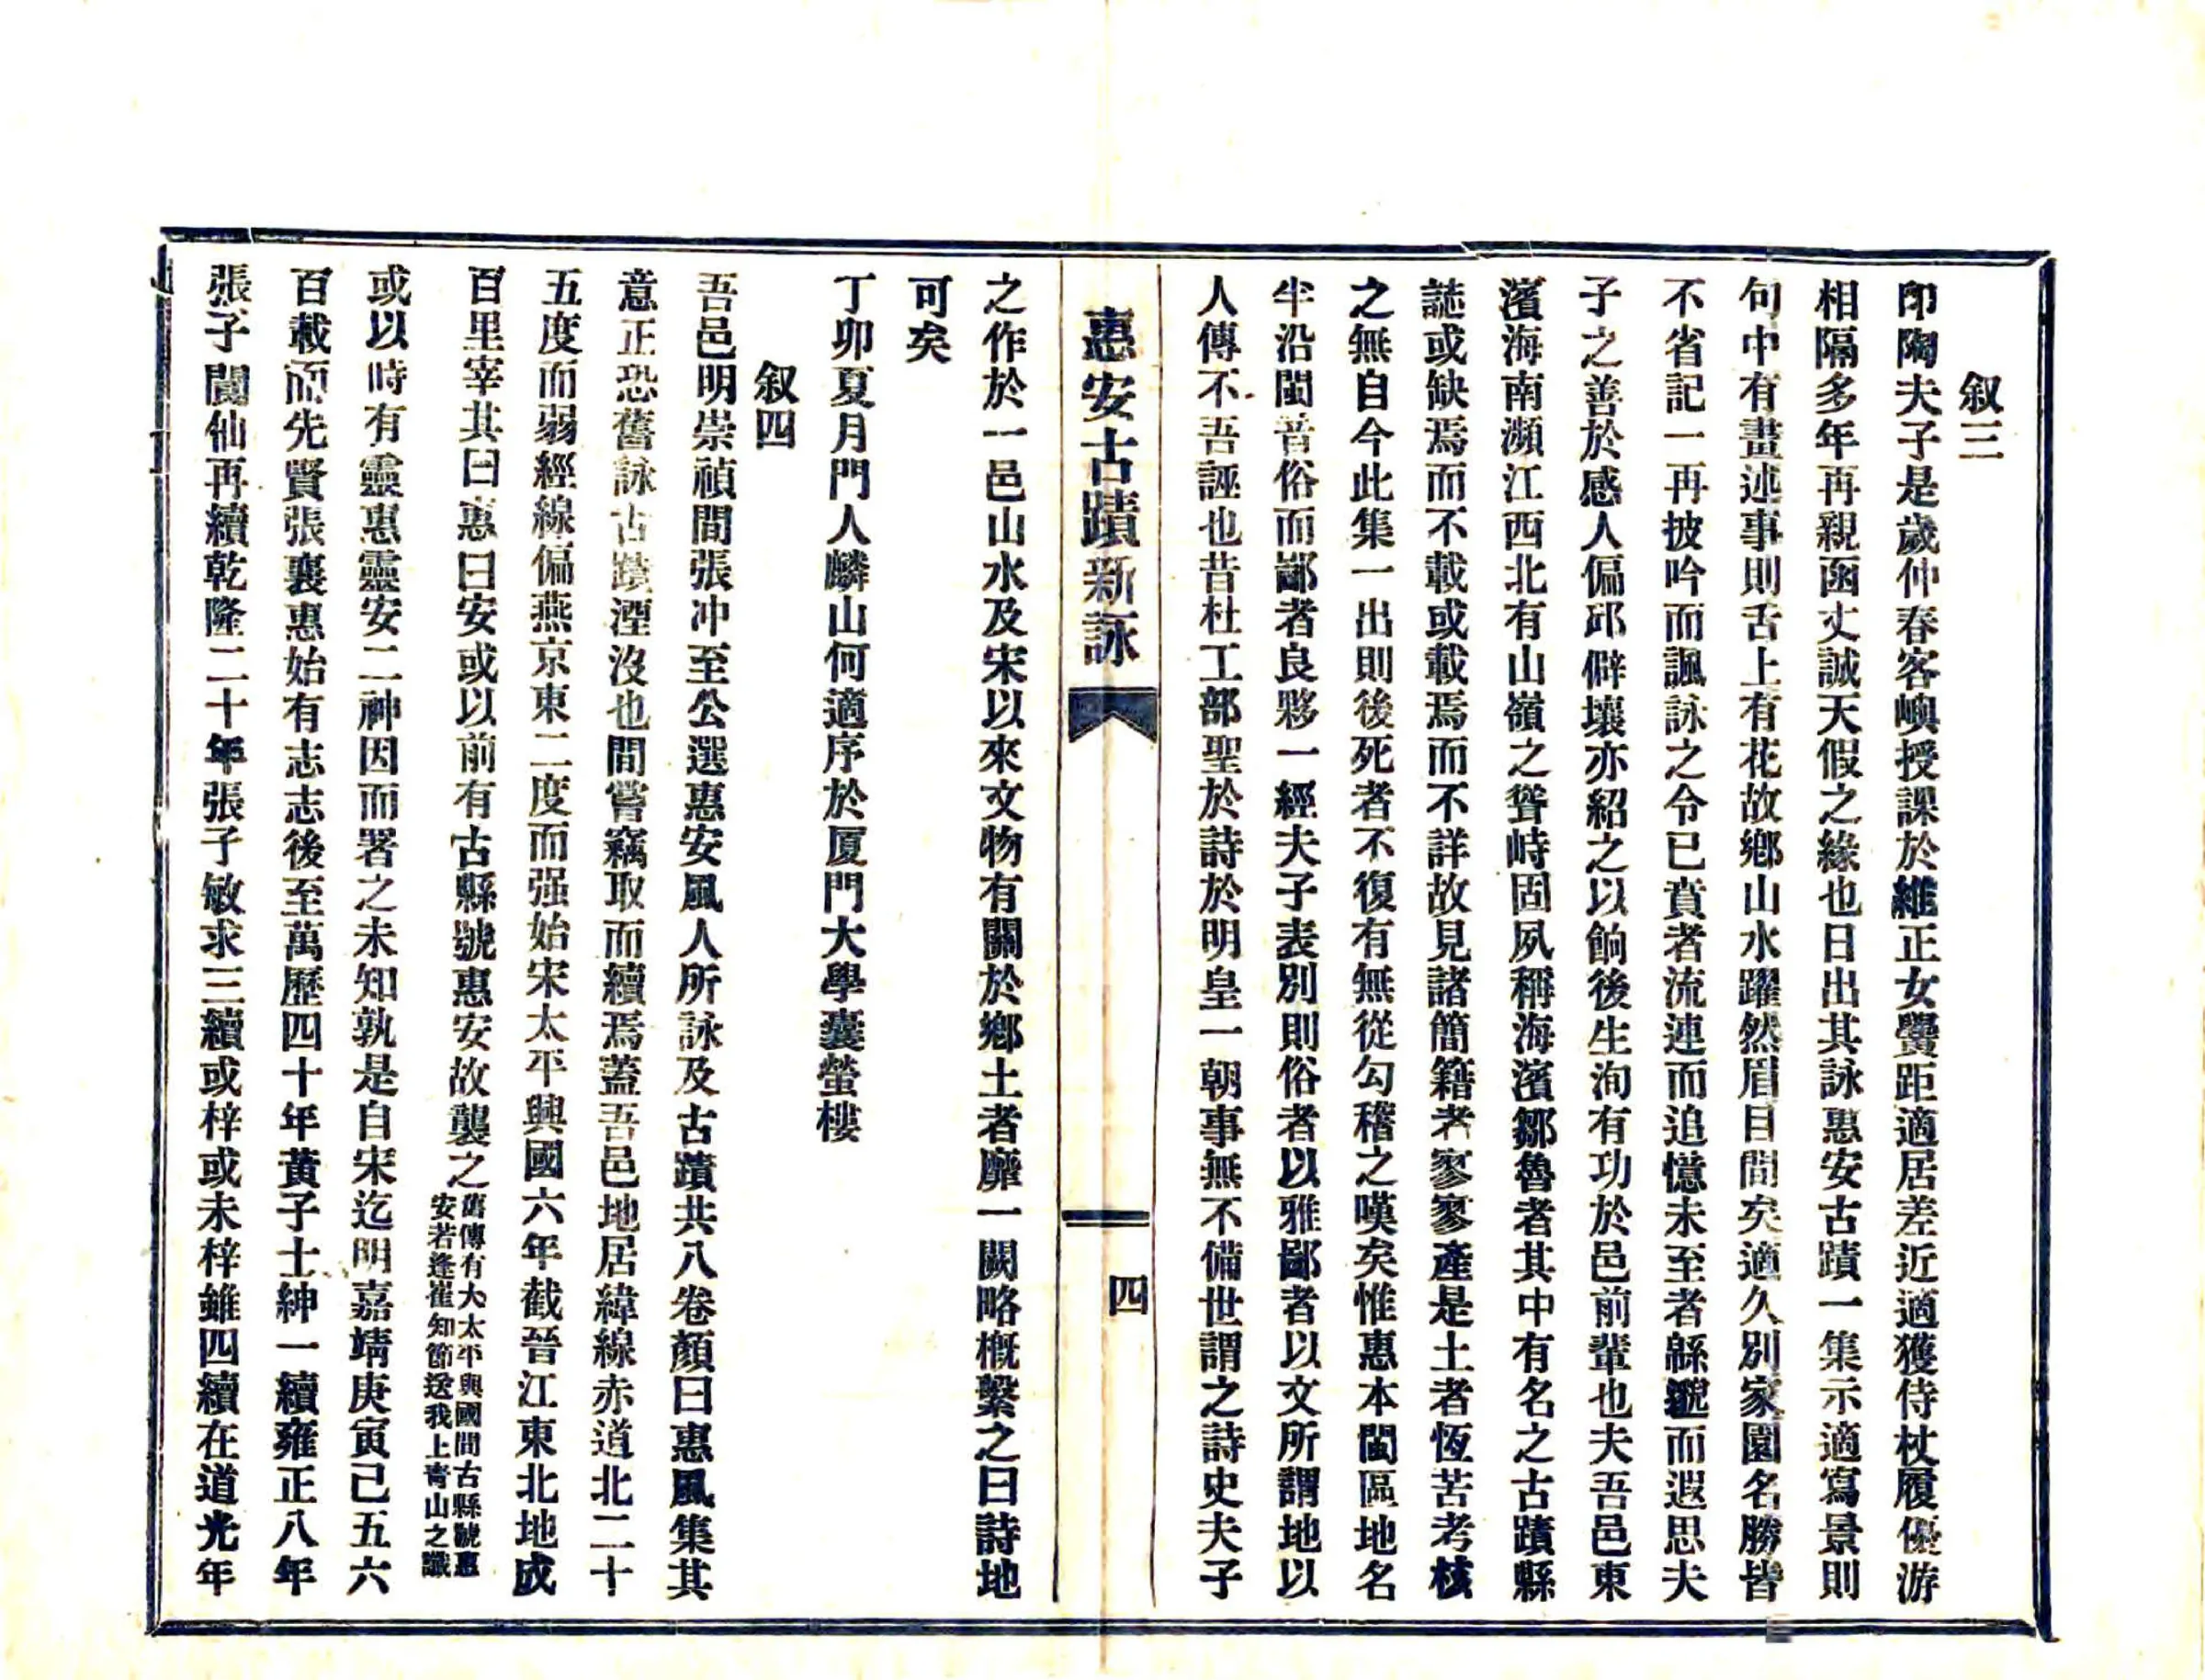 叙三
印陶夫子是歲仲春客嶼授課於維正女黌距適居差近適獲侍杖履優游
相隔多年再親函丈誠天假之緣也日出其詠惠安古蹟一集示適寫景則
句中有畫述事則舌上有花故鄉山水躍然眉目間矣適久別家園名勝皆
不省記一再披吟而諷詠之令已賁者流連而追憶未至者緜邈而遐思夫
子之善於感人偏邱僻壤亦紹之以餉後生洵有功於邑前輩也夫吾邑東
濱海南瀕江西北有山嶺之聳峙固夙稱海濱鄒魯者其中有名之古蹟縣
誌或缺焉而不載或載焉而不詳故見諸簡籍者寥寥產是土者恆苦考核
之無自今此集一出則後死者不復有無從勾稽之嘆矣惟惠本閩區地名
半沿閩音俗而鄙者良夥一經夫子表別則俗者以雅鄙者以文所謂地以
人傳不吾誣也昔杜工部聖於詩於明皇一朝事無不備世謂之詩史夫子
惠安古蹟新詠
四
之作於一邑山水及宋以來文物有關於鄉土者靡一闕略概繫之曰詩地
可矣
丁卯夏月門人麟山何適序於厦門大學囊螢樓
叙四
吾邑明崇禎間張冲至公選惠安風人所詠及古蹟共八卷顏曰惠風集其
意正恐舊詠古蹟湮沒也間嘗竊取而續焉蓋吾邑地居緯線赤道北二十
五度而弱經線偏燕京東二度而强始宋太平興國六年截晉江東北地成
百里宰其曰惠曰安或以前有古縣號惠安故襲之
舊傳有大太平興國間古縣號惠
安若逢崔知節送我上靑山之讖
或以時有靈惠靈安二神因而署之未知孰是自宋迄明嘉靖庚寅己五六
百載而先賢張襄惠始有志志後至萬歷四十年黃子士紳一續雍正八年
張子闓仙再續乾隆二十年張子敏求三續或梓或未梓雖四續在道光年